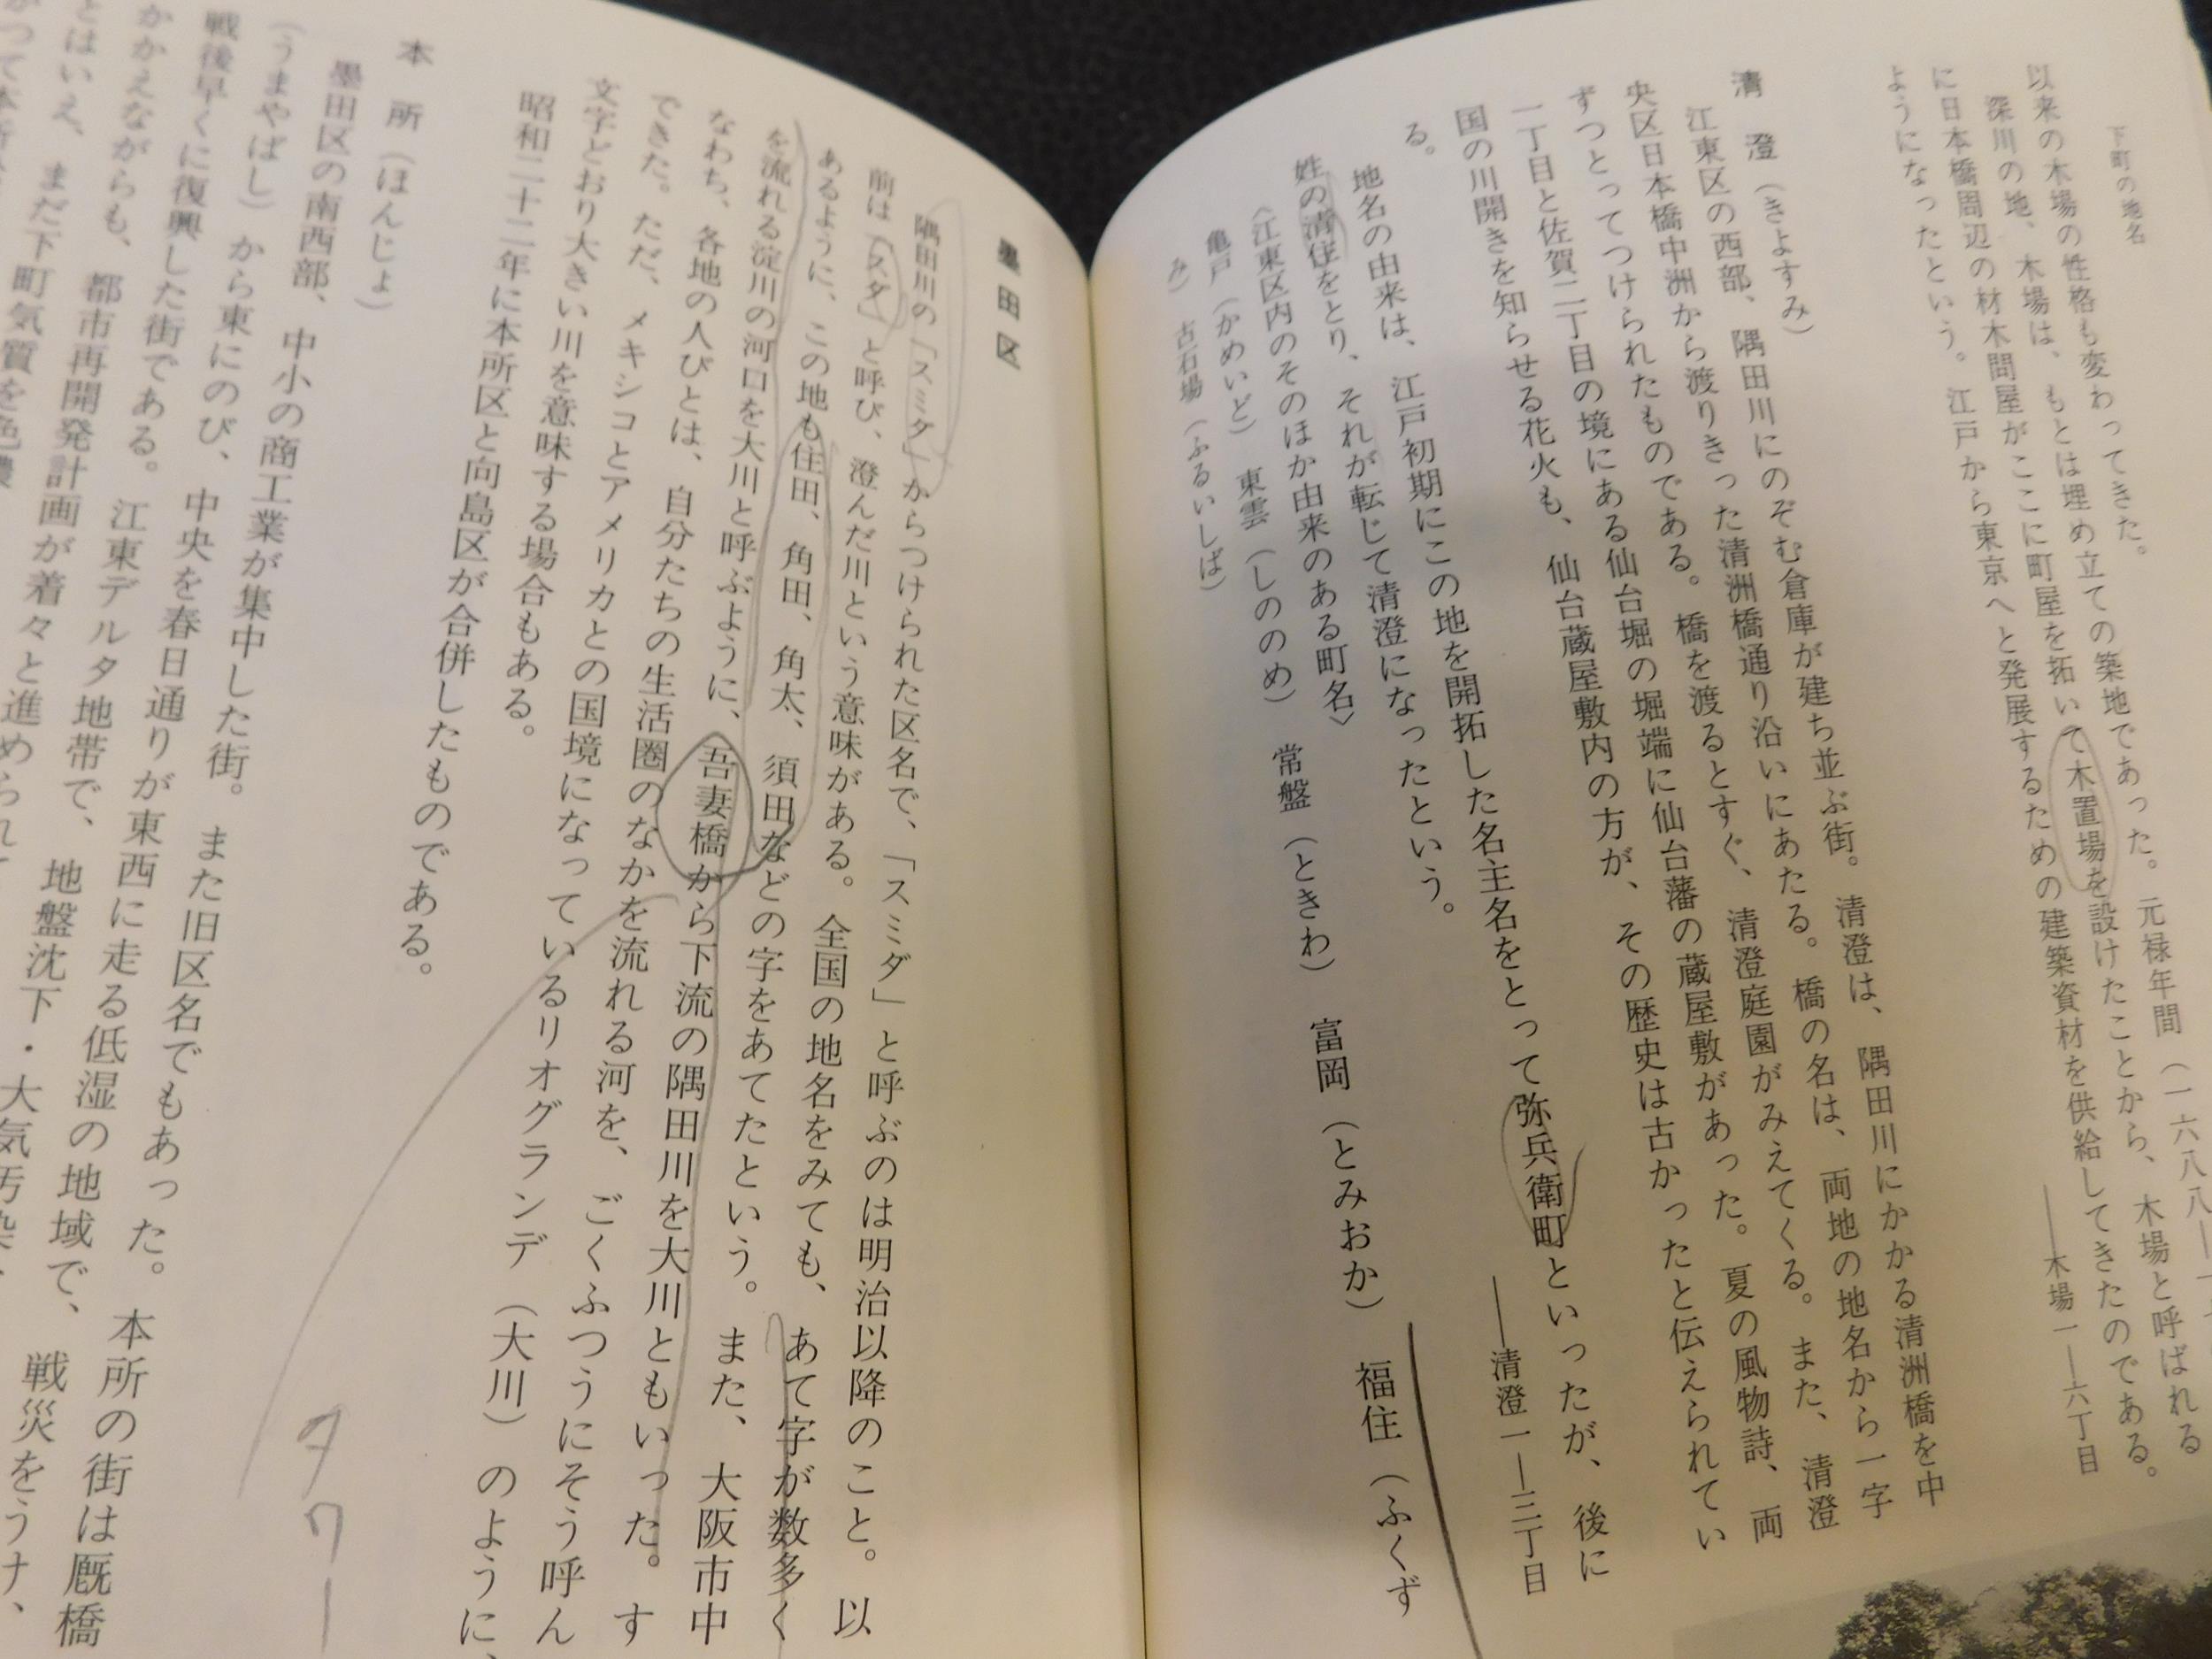 下町の地名
以来の木場の性格も変わってきた。
深川の地、木場は、もとは埋め立ての築地であった。元禄年間（一六八八―
に日本橋周辺の材木問屋がここに町屋を拓いて木置場を設けたことから、木場と呼ばれる
ようになったという。江戸から東京へと発展するための建築資材を供給してきたのである。
――木場一―六丁目
清澄（きよすみ）
江東区の西部、隅田川にのぞむ倉庫が建ち並ぶ街。清澄は、隅田川にかかる清洲橋を中
央区日本橋中洲から渡りきった清洲橋通り沿いにあたる。橋の名は、両地の地名から一字
ずつとってつけられたものである。橋を渡るとすぐ、清澄庭園がみえてくる。また、清澄
一丁目と佐賀二丁目の境にある仙台堀の堀端に仙台藩の蔵屋敷があった。夏の風物詩、両
国の川開きを知らせる花火も、仙台蔵屋敷内の方が、その歴史は古かったと伝えられてい
る。
地名の由来は、江戸初期にこの地を開拓した名主名をとって弥兵衛町といったが、後に
姓の清住をとり、それが転じて清澄になったという。
――清澄一―三丁目
〈江東区内のそのほか由来のある町名〉
亀戸（かめいど） 東雲（しののめ） 常盤（ときわ） 富岡（とみおか） 福住（ふくず
み） 古石場（ふるいしば）
墨田区
隅田川の「スミダ」からつけられた区名で、「スミダ」と呼ぶのは明治以降のこと。以
前は「スダ」と呼び、澄んだ川という意味がある。全国の地名をみても、あて字が数多く
あるように、この地も住田、角田、角太、須田などの字をあてたという。また、大阪市中
を流れる淀川の河口を大川と呼ぶように、吾妻橋から下流の隅田川を大川ともいった。す
なわち、各地の人びとは、自分たちの生活圏のなかを流れる河を、ごくふつうにそう呼ん
できた。ただ、メキシコとアメリカとの国境になっているリオグランデ（大川）のように、
文字どおり大きい川を意味する場合もある。
昭和二十二年に本所区と向島区が合併したものである。
タワー
本所（ほんじょ）
墨田区の南西部、中小の商工業が集中した街。また旧区名でもあった。本所の街は厩橋
（うまやばし）から東にのび、中央を春日通りが東西に走る低湿の地域で、戦災をうけ、
戦後早くに復興した街である。江東デルタ地帯で、地盤沈下・大気汚染、
かかえながらも、都市再開発計画が着々と進められて
とはいえ、まだ下町気質を色濃